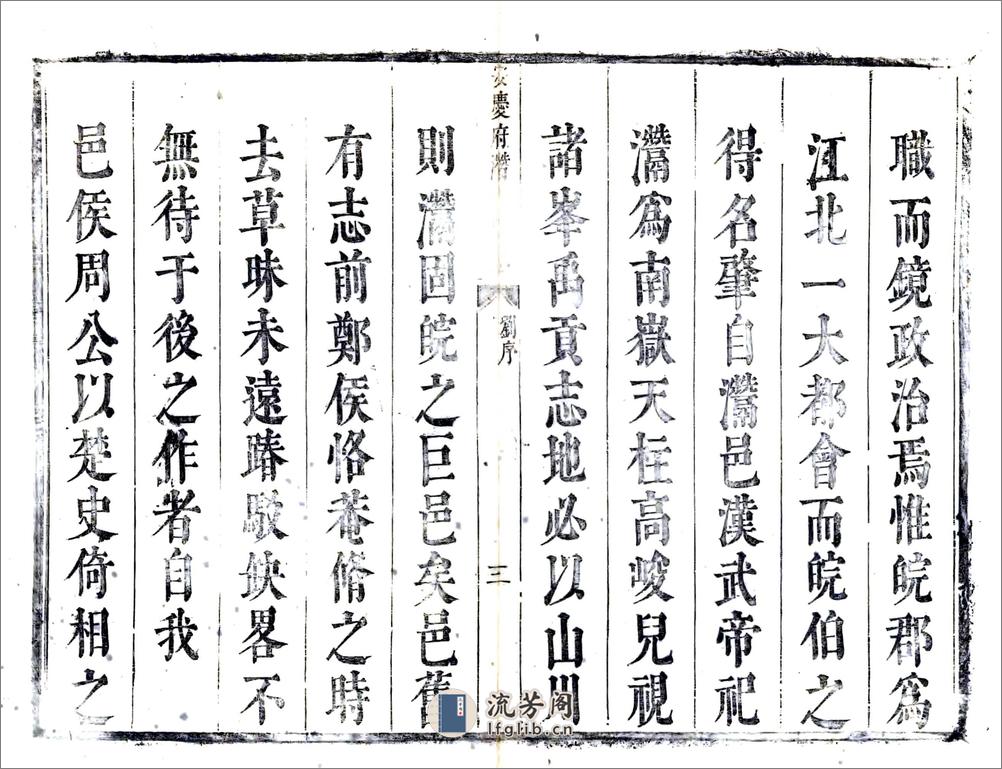 職而鏡政治焉惟皖郡爲
江北一大都會而皖伯之
得名肇自灊邑漢武帝祀
灊爲南嶽天柱高峻兒視
諸峯禹貢志地必以山川
安慶府灊
劉序
三
則灊固皖之巨邑矣邑舊
有志前鄭侯恪菴脩之時
去草昧未遠踳駁缺畧不
無待于後之作者自我
邑侯周公以楚史倚相之
流芳阁
lfglib.cn